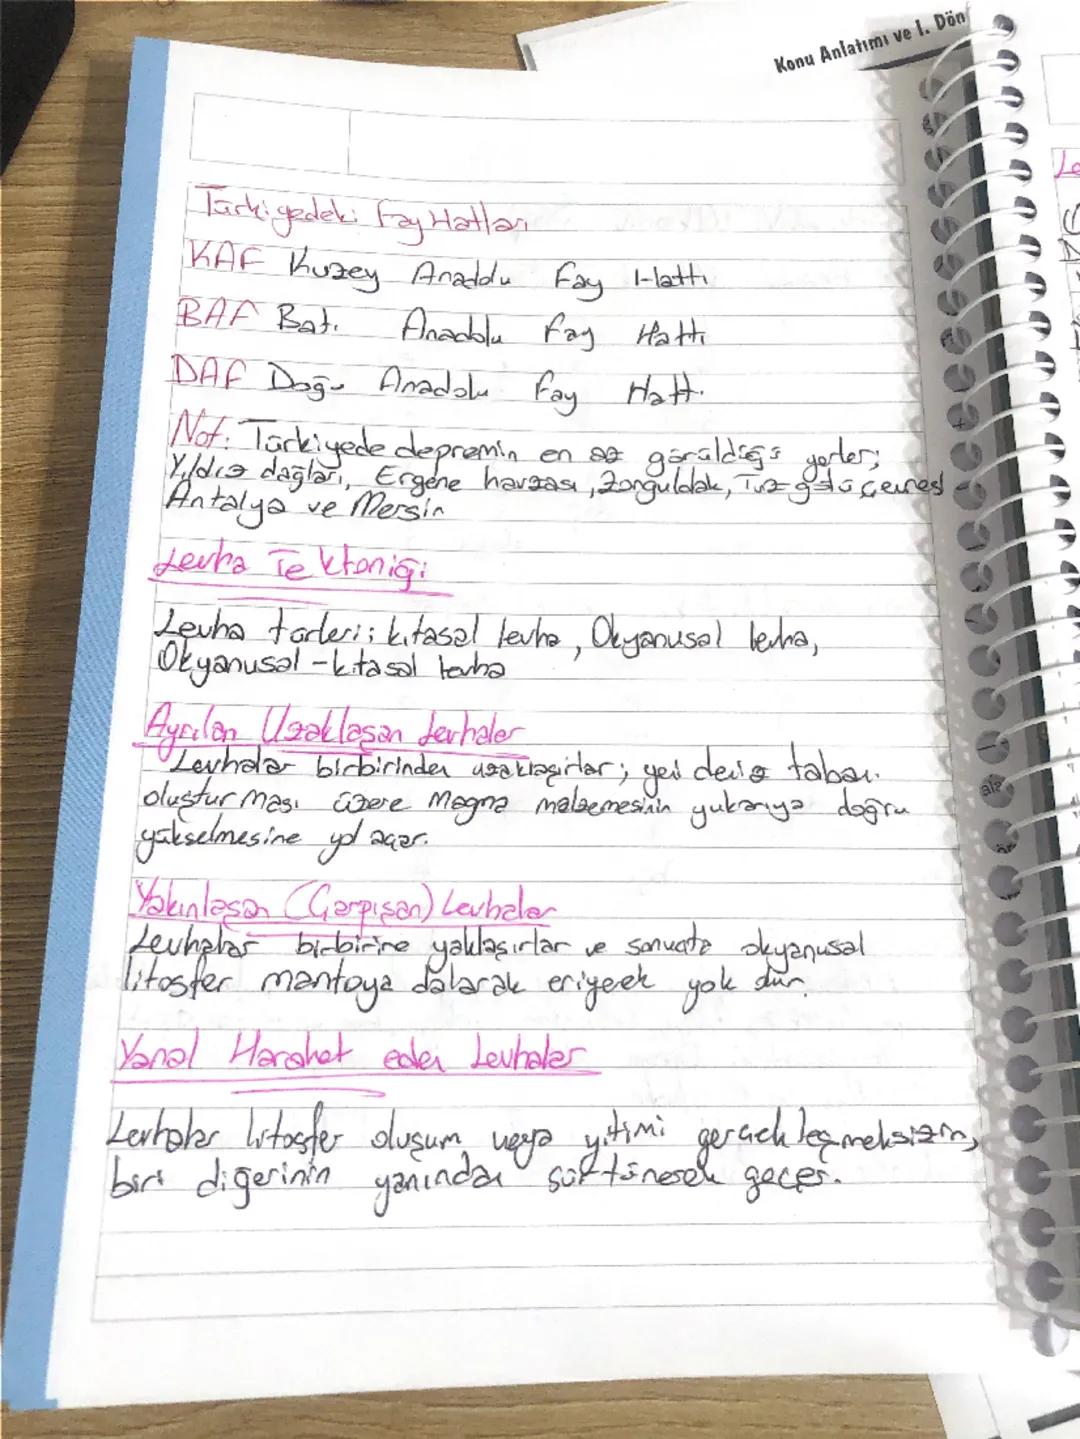 Konu Anlatımı ve I. Dön
Türkiyedeki Fay Hatları
KAF Kuzey Anadolu Fay Hattı
BAF Batı Anadolu Fay Hattı
DAF Doğu Anadolu Fay Hattı
Not: Türkiyede depremin en az görüldüğü yerler;
Yıldız dağları, Ergene havzası, Zonguldak, Tuz gölü çevresi
Antalya ve Mersin
Levha Tektoniği
Levha türleri; kıtasal levha, Okyanusal levha,
Okyanusal - kıtasal levha
Ayrılan Uzaklaşan Levhalar
Levhalar birbirinden uzaklaşırlar; yeni deniz tabanı
oluşturması üzere Magma malzemesinin yukarıya doğru
yükselmesine yol açar.
Yakınlaşan (Çarpışan) Levhalar
Levhalar birbirine yaklaşırlar ve sonuçta okyanusal
litosfer mantoya dalarak eriyerek yok olur.
Yanal Harahet eden Levhalar
Levhalar litosfer oluşum veya yitimi gerçekleşmeksizin,
biri diğerinin yanından sürtünerek geçer.